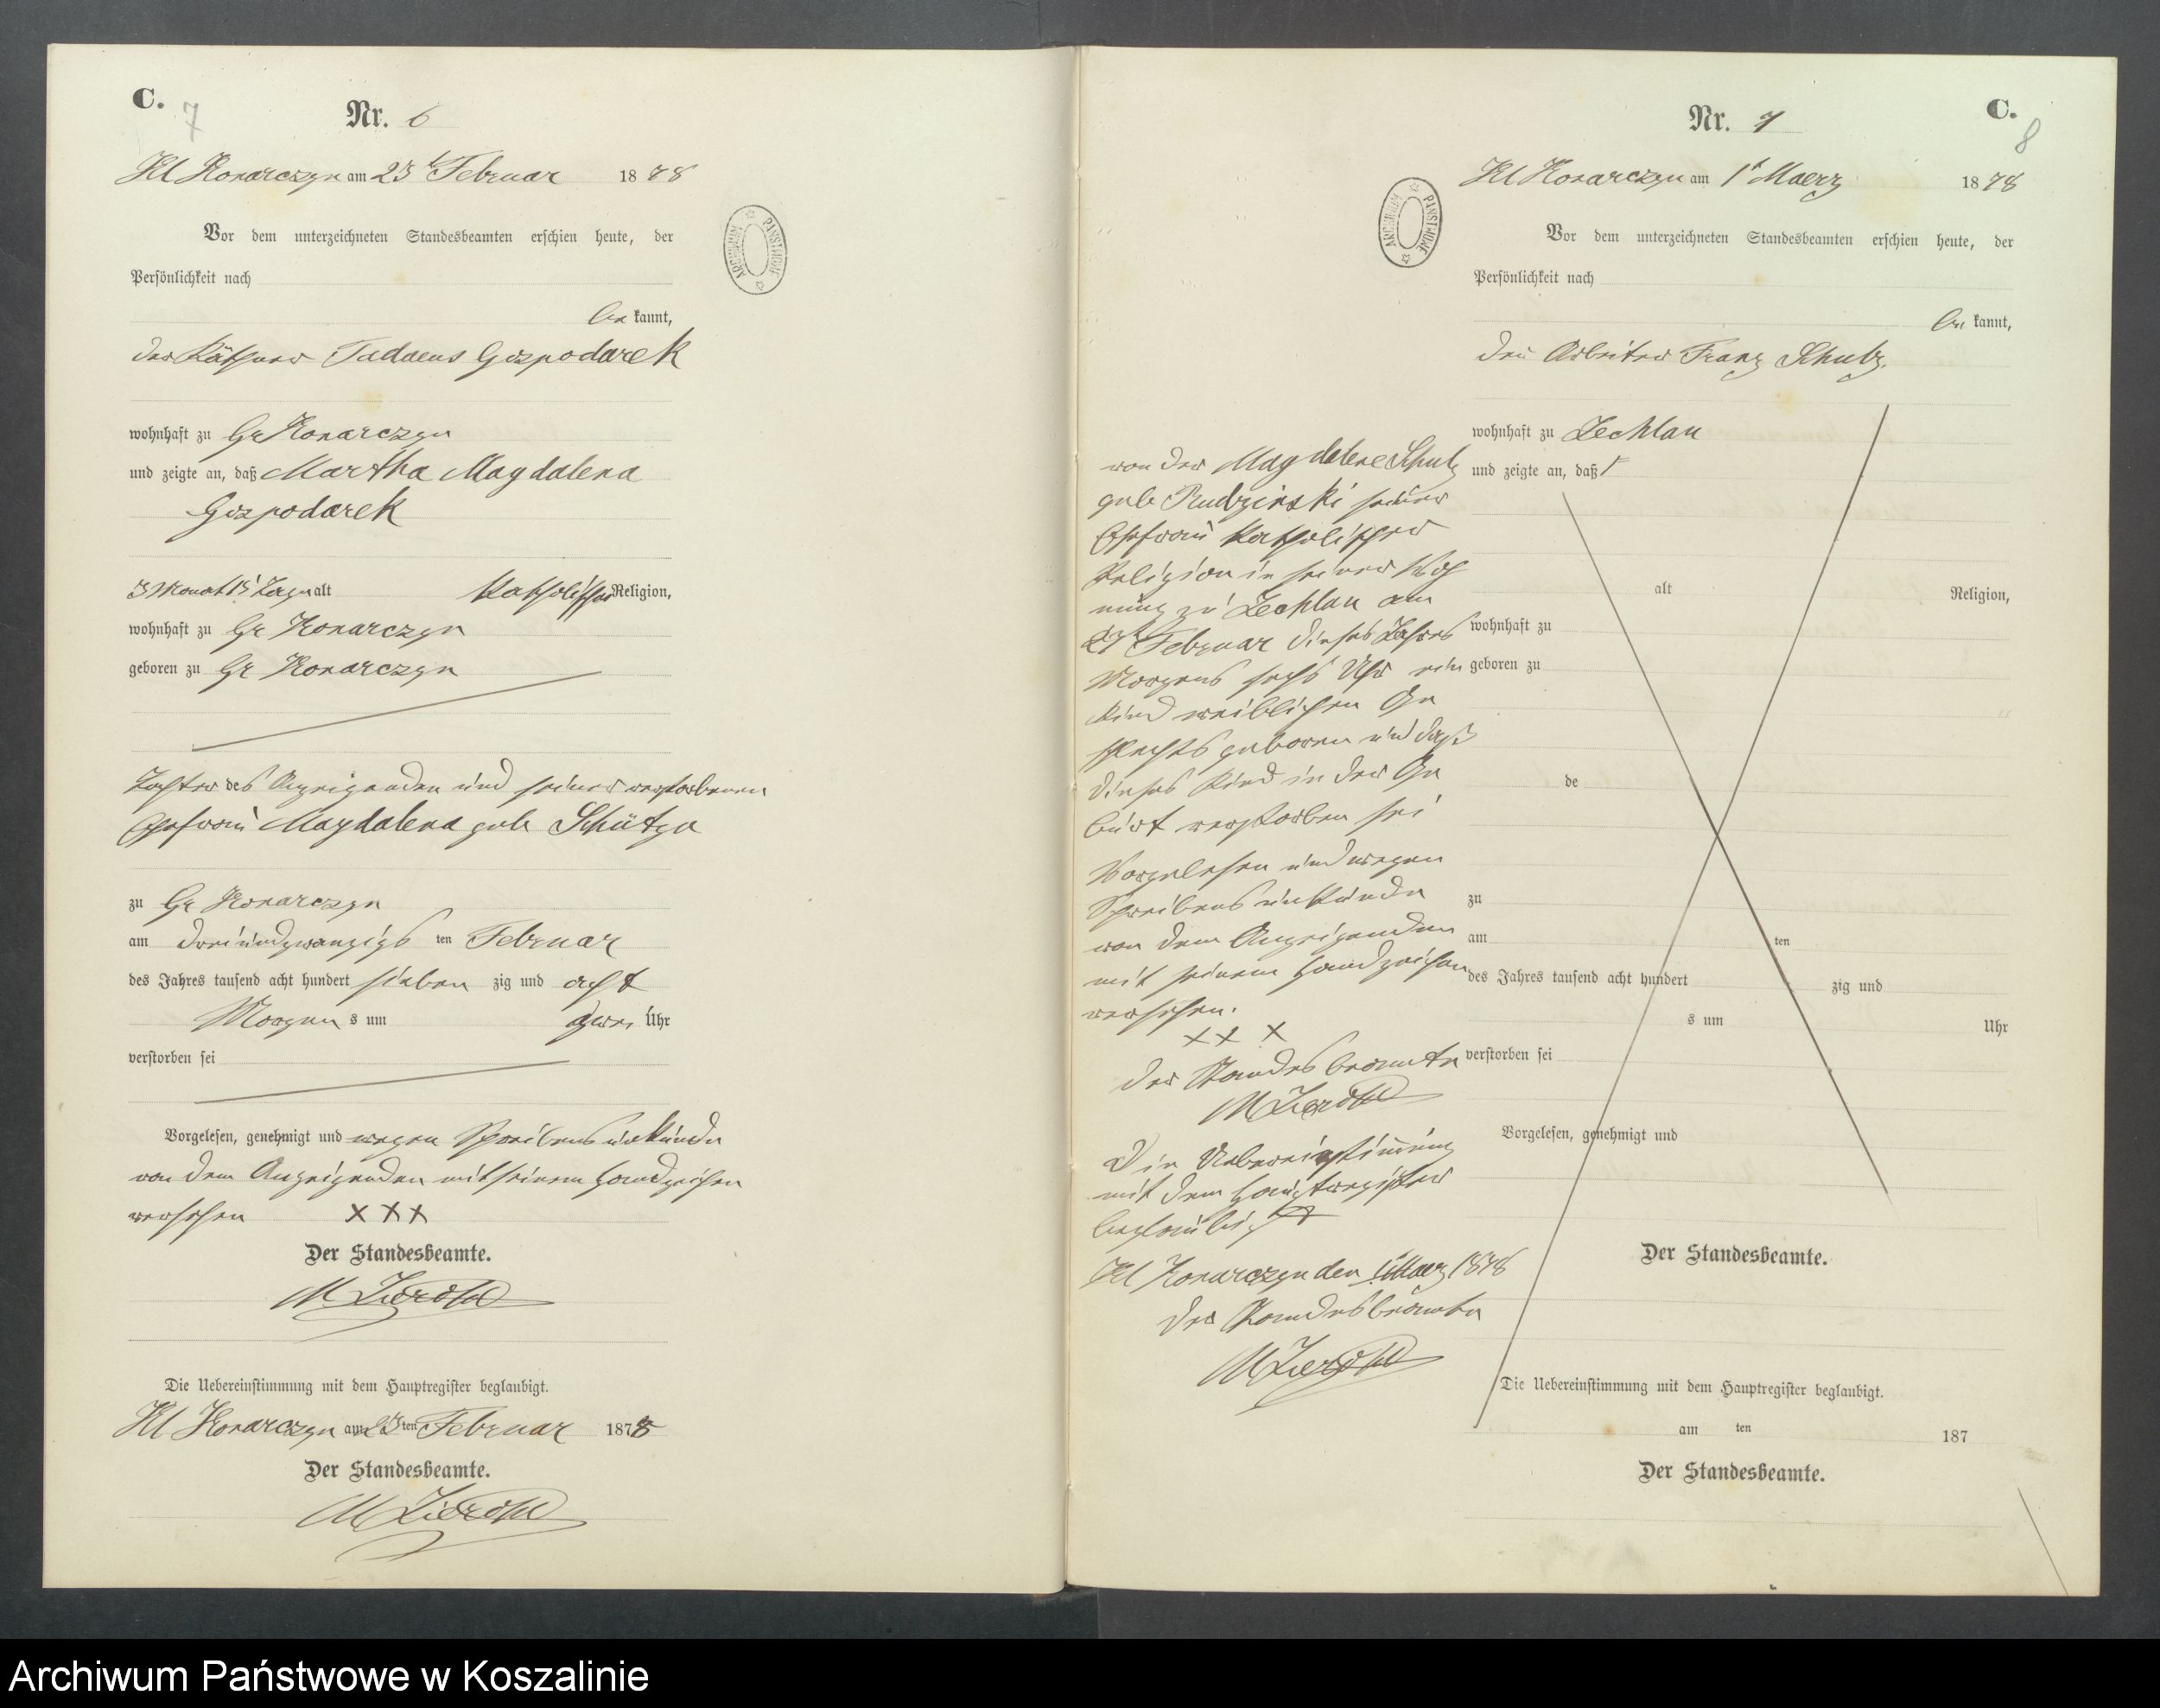 C.
7
Nr. 6
Kl Konarczyn am 23 t Februar 1878
Vor dem unterzeichneten Standesbeamten erschien heute, der
Persönlichkeit nach
be kannt,
der Käthner Tadaeus Gospodarek
wohnhaft zu Gr Konarczyn
und zeigte an, daß Martha Magdalena
Gospodarek
3 Monat 15 Tage alt Katholischer Religion,
wohnhaft zu Gr Konarczyn
geboren zu Gr Konarczyn
Tochter des Anzeigenden und seiner verstorbenen
Ehefrau Magdalena geb Schütza
zu Gr Konarczyn
am dreiundzwanzigs ten Februar
des Jahres tausend acht hundert sieben zig und acht
Morgen s um zwei Uhr
verstorben sei
Vorgelesen, genehmigt und wegen Schreibensunkunde
von dem Anzeigenden mit seinem Handzeichen
versehen XXX
Der Standesbeamte.
Die Uebereinstimmung mit dem Hauptregister beglaubigt.
Kl Konarczyn am 23 ten Februar 1878
Der Standesbeamte.
C.
8
Nr. 7
Kl Konarczyn am 1 t Maerz 1878
Vor dem unterzeichneten Standesbeamten erschien heute, der
Persönlichkeit nach
be kannt,
der Arbeiter Franz Schulz.
wohnhaft zu Zechlau
und zeigte an, daß
von der Magdalene Schulz
geb Rudzinski seiner
Ehefrau Katholischer
Religion in seiner Woh
nung zu Zechlau am
Februar dieses Jahres
Morgens sechs Uhr ein
Kind weiblichen Ge
schlechts geboren und daß
dieses Kind in der Ge
burt verstorben sei
Vorgelesen und wegen
Schreibensunkunde
von dem Anzeigenden
mit seinem Handzeichen
versehen.
XX X
Der Standesbeamte
Die Uebereinstimmung
mit dem Hauptregister
beglaubigt
Kl Konarczyn den 1 t Maerz 1878
Der Standesbeamte
alt Religion,
wohnhaft zu
geboren zu
de
zu
am ten
des Jahres tausend acht hundert zig und
s um Uhr
verstorben sei
Vorgelesen, genehmigt und
Der Standesbeamte.
Die Uebereinstimmung mit dem Hauptregister beglaubigt.
am ten 187
Der Standesbeamte.
ARCHIWUM PAŃSTWOWE
ARCHIWUM PAŃSTWOWE
Archiwum Państwowe w Koszalinie